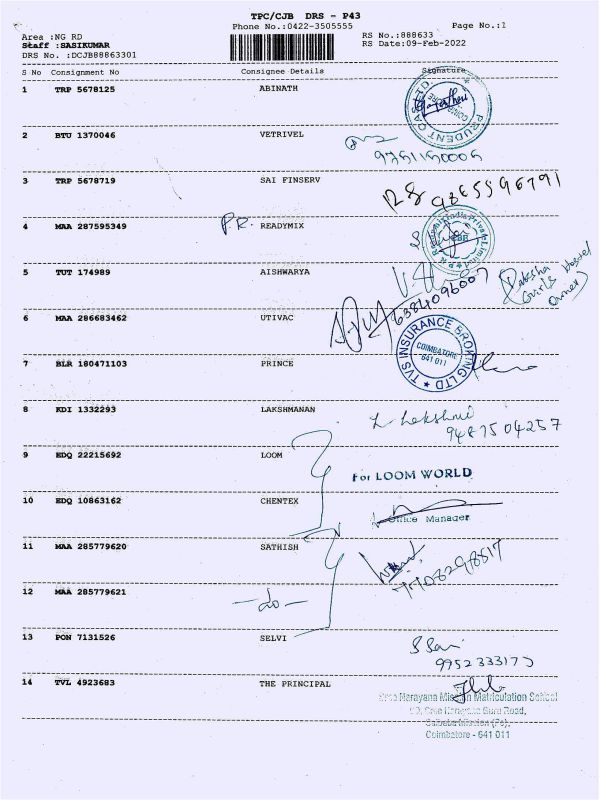 TPC/CJB DRS - P43
Phone No.:0422-3505555 Page No.:1
Area :NG RD RS No.:888633
Staff :SASIKUMAR RS Date:09-Feb-2022
DRS No. :DCJB88863301
S No Consignment No Consignee Details Signature
1 TRP 5678125 ABINATH
PRUDENT
COIMBATORE
2 BTU 1370046 VETRIVEL
9751150005
3 TRP 5678719 SAI FINSERV
RS 9865596791
4 MAA 287595349 P.R. READYMIX
5 TUT 174989 AISHWARYA
6384096007
Raksha Girls Hostel Owner)
6 MAA 286683462 UTIVAC
TVS INSURANCE BROKING LTD
COIMBATORE
641 011
7 BLR 180471103 PRINCE
8 KDI 1332293 LAKSHMANAN
L. Lakshmi
9487504257
9 EDQ 22215692 LOOM
For LOOM WORLD
10 EDQ 10863162 CHENTEX
Office Manager
11 MAA 285779620 SATHISH
12 MAA 285779621 -do-
13 PON 7131526 SELVI
9952333177
14 TVL 4923683 THE PRINCIPAL
Sree Narayana Mission Matriculation School
Sree Narayana Guru Road,
Saibaba Mission (Po),
Coimbatore - 641 011